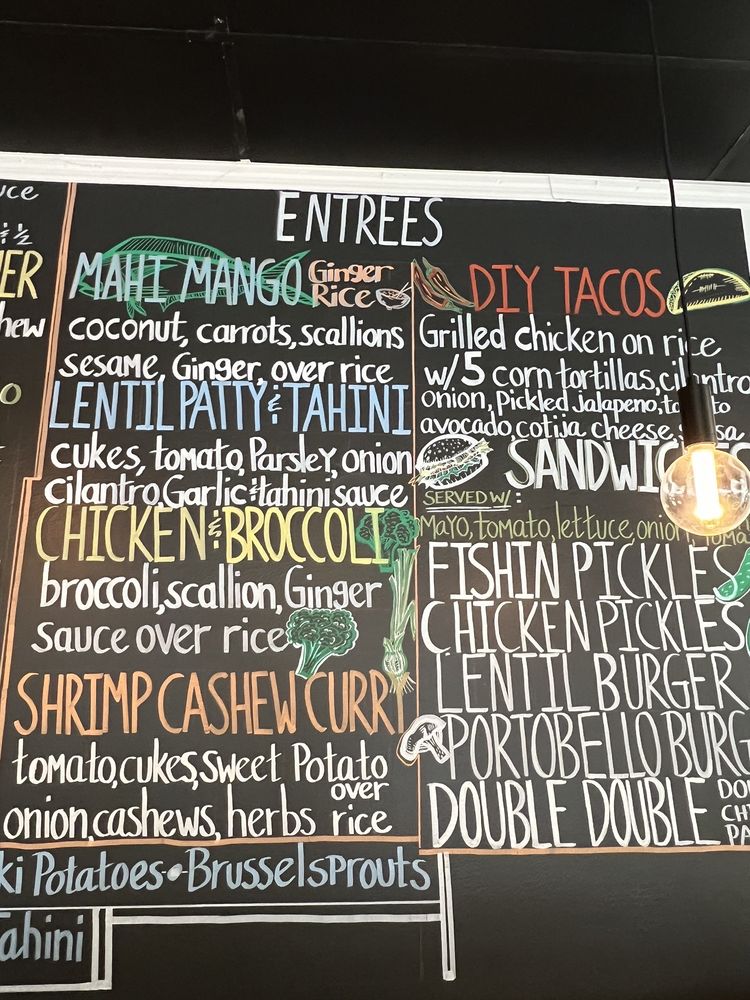 ENTREES
MAHI MANGO Ginger Rice
coconut, carrots, scallions
sesame, Ginger, over rice
LENTIL PATTY & TAHINI
cukes, tomato, Parsley, onion
cilantro, Garlic & tahini sauce
CHICKEN & BROCCOLI
broccoli, scallion, Ginger
sauce over rice
SHRIMP CASHEW CURRY
tomato, cukes, sweet Potato
over
onion, cashews, herbs rice
DIY TACOS
Grilled chicken on rice
w/5 corn tortillas, cilantro
onion, Pickled jalapeno, tomato
avocado, cotija cheese, salsa
SANDWICHES
SERVED W/:
Mayo, tomato, lettuce, onion,
FISHIN PICKLES
CHICKEN PICKLES
LENTIL BURGER
PORTOBELLO BURG
DOUBLE DOUBLE
Potatoes • Brusselsprouts
Tahini